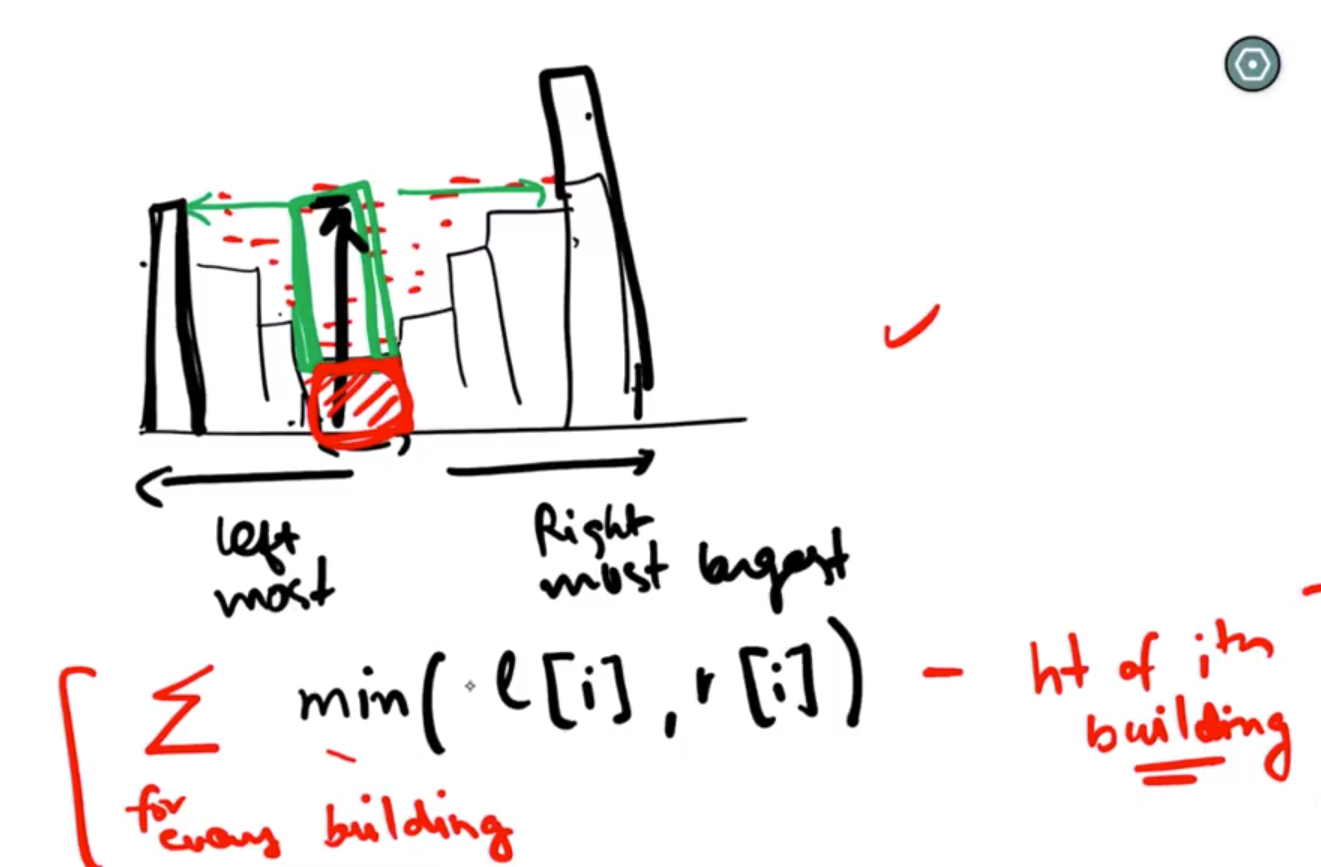 left
most
Right
most largest
∑ min( l[i], r[i]) - ht of ith
building
for
every building